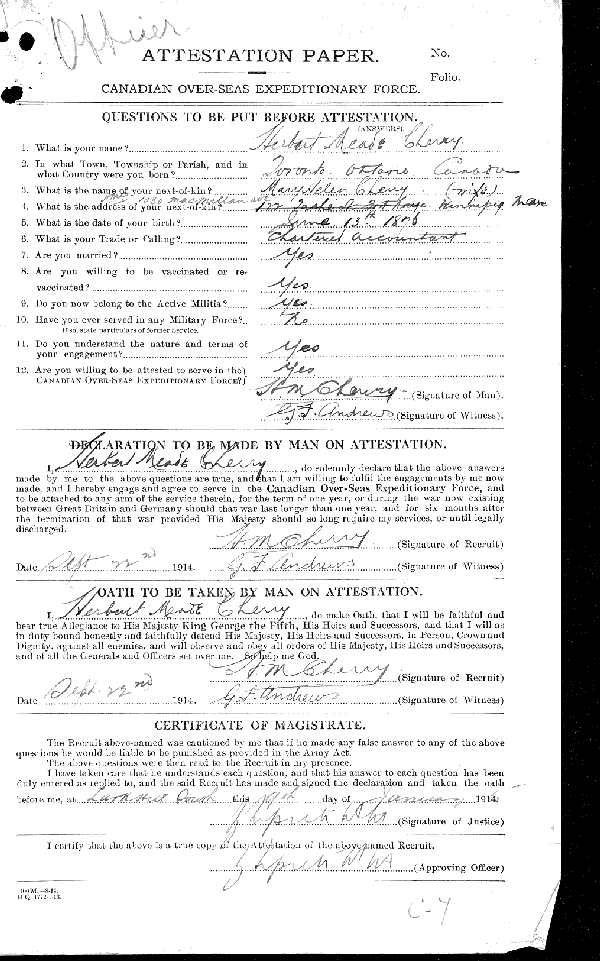 Officer
ATTESTATION PAPER.
No.
Folio.
CANADIAN OVER-SEAS EXPEDITIONARY FORCE.
QUESTIONS TO BE PUT BEFORE ATTESTATION.
(ANSWERS).
1. What is your name? Herbert Meade Cherry
2. In what Town, Township or Parish, and in
what Country were you born? Toronto Ontario Canada
3. What is the name of your next-of-kin? Mary Helen Cherry (wife)
1030 MacMillan Ave
4. What is the address of your next-of-kin? Winnipeg Man
5. What is the date of your birth? June 13th
6. What is your Trade or Calling? Chartered Accountant
7. Are you married? Yes
8. Are you willing to be vaccinated or re-
vaccinated? Yes
9. Do you now belong to the Active Militia? Yes
10. Have you ever served in any Military Force? No
If so, state particulars of former Service.
11. Do you understand the nature and terms of
your engagement? Yes
12. Are you willing to be attested to serve in the Yes
CANADIAN OVER-SEAS EXPEDITIONARY FORCE?
HM Cherry (Signature of Man).
G. F. Andrews (Signature of Witness).
DECLARATION TO BE MADE BY MAN ON ATTESTATION.
I, Herbert Meade Cherry, do solemnly declare that the above answers
made by me to the above questions are true, and that I am willing to fulfil the engagements by me now
made, and I hereby engage and agree to serve in the Canadian Over-Seas Expeditionary Force, and
to be attached to any arm of the service therein, for the term of one year, or during the war now existing
between Great Britain and Germany should that war last longer than one year, and for six months after
the termination of that war provided His Majesty should so long require my services, or until legally
discharged.
HM Cherry (Signature of Recruit)
Date Sept 22nd 1914. G. F. Andrews (Signature of Witness)
OATH TO BE TAKEN BY MAN ON ATTESTATION.
I, Herbert Meade Cherry, do make Oath, that I will be faithful and
bear true Allegiance to His Majesty King George the Fifth, His Heirs and Successors, and that I will as
in duty bound honestly and faithfully defend His Majesty, His Heirs and Successors, in Person, Crown and
Dignity, against all enemies, and will observe and obey all orders of His Majesty, His Heirs and Successors,
and of all the Generals and Officers set over me. So help me God.
HM Cherry (Signature of Recruit)
Date Sept. 22nd 1914. G. F. Andrews (Signature of Witness)
CERTIFICATE OF MAGISTRATE.
The Recruit above-named was cautioned by me that if he made any false answer to any of the above
questions he would be liable to be punished as provided in the Army Act.
The above questions were then read to the Recruit in my presence.
I have taken care that he understands each question, and that his answer to each question has been
duly entered as replied to, and the said Recruit has made and signed the declaration and taken the oath
before me, at this day of January 1914
(Signature of Justice)
I certify that the above is a true copy of the Attestation of the above named Recruit.
(Approving Officer)
C-4